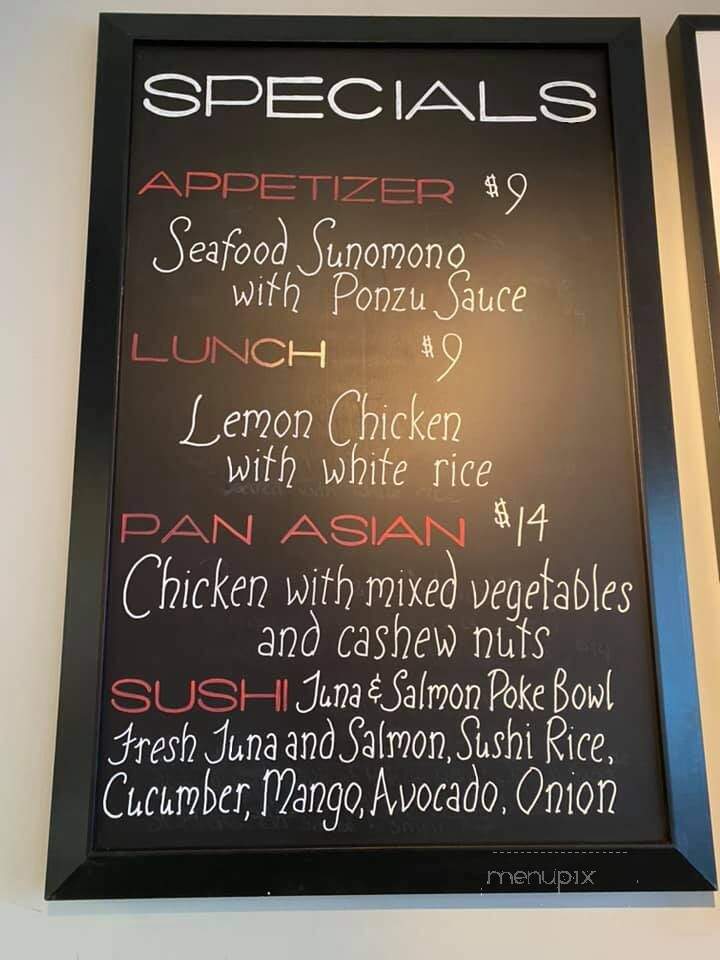 SPECIALS
APPETIZER $9
Seafood Sunomono
with Ponzu Sauce
LUNCH $9
Lemon Chicken
with white rice
PAN ASIAN $14
Chicken with mixed vegetables
and cashew nuts
SUSHI Tuna & Salmon Poke Bowl
Fresh Tuna and Salmon, Sushi Rice,
Cucumber, Mango, Avocado, Onion
menupix